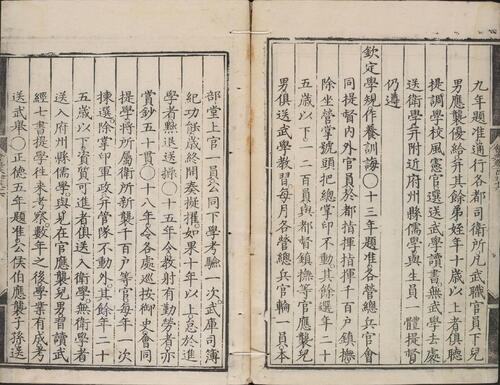 九年題准通行各都司衛所凡武職官員下兒
男應襲優給并其餘弟姪年十歲以上者俱聽
提調學校風憲官選送武學讀書無武學去處
送衛學并附近府州縣儒學與生員一體提督
仍遵
欽定學規作養訓誨○十三年題准各營總兵官會
同提督內外官員於都指揮指揮千百戶鎮撫
除坐營掌號頭把總掌印不動其餘選年二十
五歲以下二百員與都督鎮撫等官應襲兒
男俱送武學教習每月各營總兵官輪一員本
部堂上官一員公同下學考驗一次武庫司簿
紀功餘歲終開奏擬擢如果十年以上怠於進
學者黜退送操○十五年令教射有勤勞者亦
賞鈔五十貫○十八年令各處巡按御史會同
提學將所屬衛所新襲千百戶等官每年一次
揀選除掌印軍政并管隊不動外其餘年二十
五歲以下資質可進者俱送入衛學無衛學者
送入府州縣儒學與見在官應襲兒男習讀武
經七書提學往來考察數年之後學業有成考
送武舉○正德五年題准公侯伯應襲子孫送